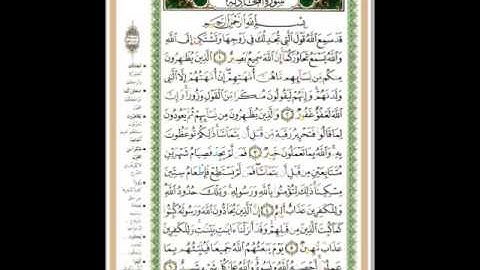 سُورَةُ المُجَادلة
بِسْمِ اللَّهِ الرَّحْمَٰنِ الرَّحِيمِ
قَدْ سَمِعَ اللَّهُ قَوْلَ الَّتِي تُجَٰدِلُكَ فِي زَوْجِهَا وَتَشْتَكِي إِلَى اللَّهِ
وَاللَّهُ يَسْمَعُ تَحَاوُرَكُمَا إِنَّ اللَّهَ سَمِيعٌ بَصِيرٌ ١ الَّذِينَ يُظَٰهِرُونَ
مِنكُم مِّن نِّسَائِهِم مَّا هُنَّ أُمَّهَٰتِهِمْ إِنْ أُمَّهَٰتُهُمْ إِلَّا الَّٰـِٔي
وَلَدْنَهُمْ وَإِنَّهُمْ لَيَقُولُونَ مُنكَرًا مِّنَ الْقَوْلِ وَزُورًا وَإِنَّ
اللَّهَ لَعَفُوٌّ غَفُورٌ ٢ وَالَّذِينَ يُظَٰهِرُونَ مِن نِّسَائِهِمْ ثُمَّ يَعُودُونَ
لِمَا قَالُوا فَتَحْرِيرُ رَقَبَةٍ مِّن قَبْلِ أَن يَتَمَاسَّا ذَٰلِكُمْ تُوعَظُونَ
بِهِ وَاللَّهُ بِمَا تَعْمَلُونَ خَبِيرٌ ٣ فَمَن لَّمْ يَجِدْ فَصِيَامُ شَهْرَيْنِ
مُتَتَابِعَيْنِ مِن قَبْلِ أَن يَتَمَاسَّا فَمَن لَّمْ يَسْتَطِعْ فَإِطْعَامُ سِتِّينَ
مِسْكِينًا ذَٰلِكَ لِتُؤْمِنُوا بِاللَّهِ وَرَسُولِهِ وَتِلْكَ حُدُودُ اللَّهِ
وَلِلْكَٰفِرِينَ عَذَابٌ أَلِيمٌ ٤ إِنَّ الَّذِينَ يُحَادُّونَ اللَّهَ وَرَسُولَهُ كُبِتُوا
كَمَا كُبِتَ الَّذِينَ مِن قَبْلِهِمْ وَقَدْ أَنزَلْنَا ءَايَٰتٍ بَيِّنَٰتٍ وَلِلْكَٰفِرِينَ
عَذَابٌ مُّهِينٌ ٥ يَوْمَ يَبْعَثُهُمُ اللَّهُ جَمِيعًا فَيُنَبِّئُهُم بِمَا
عَمِلُوا أَحْصَىٰهُ اللَّهُ وَنَسُوهُ وَاللَّهُ عَلَىٰ كُلِّ شَيْءٍ شَهِيدٌ ٦